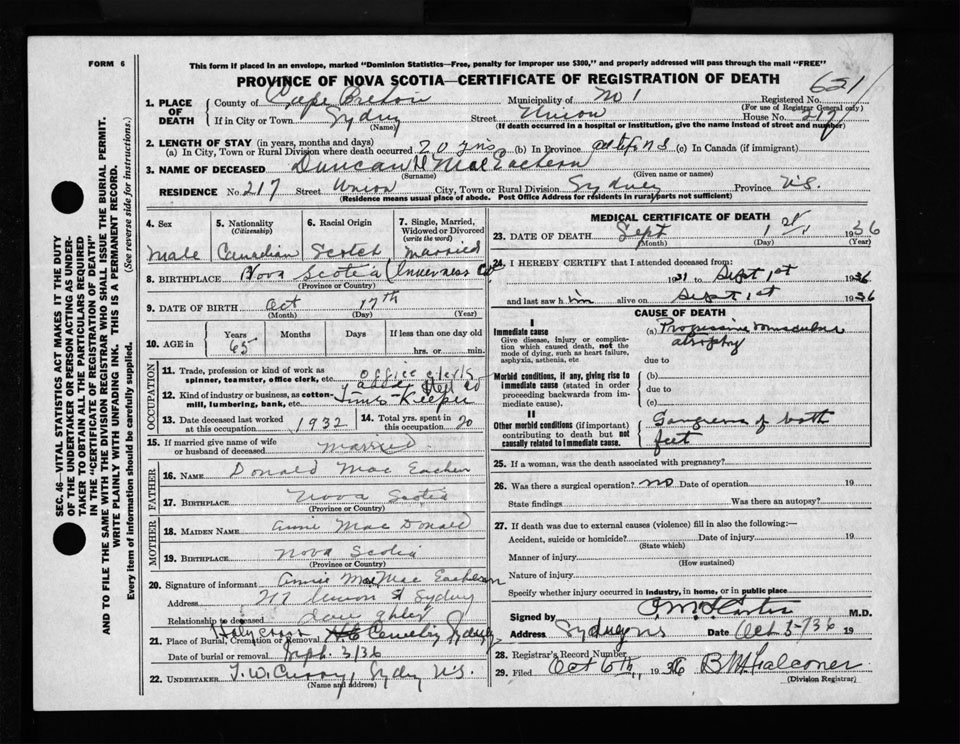 FORM 6
This form if placed in an envelope, marked "Dominion Statistics—Free, penalty for improper use $300," and properly addressed will pass through the mail "FREE"
PROVINCE OF NOVA SCOTIA—CERTIFICATE OF REGISTRATION OF DEATH
621
1. PLACE OF DEATH
County of Cape Breton Municipality of No 1 Registered No.
(For use of Registrar General only)
If in City or Town Sydney Street Union House No. 217
(Name) (If death occurred in a hospital or institution, give the name instead of street and number)
2. LENGTH OF STAY (in years, months and days)
(a) In City, Town or Rural Division where death occurred 20 yrs (b) In Province (c) In Canada (if immigrant)
3. NAME OF DECEASED Duncan H MacEachern
(Surname) (Given name or names)
RESIDENCE No. 217 Street Union City, Town or Rural Division Sydney Province N.S.
(Residence means usual place of abode. Post Office Address for residents in rural parts not sufficient)
4. Sex 5. Nationality 6. Racial Origin 7. Single, Married,
(Citizenship) Widowed or Divorced
(write the word)
Male Canadian Scotch Married
8. BIRTHPLACE Nova Scotia (Inverness Co)
(Province or Country)
9. DATE OF BIRTH Oct 17th
(Month) (Day) (Year)
10. AGE in Years Months Days If less than one day old
65 hrs. or min.
OCCUPATION
11. Trade, profession or kind of work as office clerk
spinner, teamster, office clerk, etc.
12. Kind of industry or business, as cotton-
mill, lumbering, bank, etc. Time-Keeper
13. Date deceased last worked at this occupation 1932 14. Total yrs. spent in this occupation 20
15. If married give name of wife
or husband of deceased Married
FATHER
16. NAME Donald Mac Eachern
17. BIRTHPLACE Nova Scotia
(Province or Country)
MOTHER
18. MAIDEN NAME Annie Mac Donald
19. BIRTHPLACE Nova Scotia
(Province or Country)
20. Signature of informant Annie Mae Mac Eachern
Address 217 Union St Sydney
Relationship to deceased
21. Place of Burial, Cremation or Removal Holy Cross Cemetery Sydney
Date of burial or removal Sept. 3/36
22. UNDERTAKER T. W. Curry, Sydney N.S.
(Name and address)
MEDICAL CERTIFICATE OF DEATH
23. DATE OF DEATH Sept 1st 1936
(Month) (Day) (Year)
24. I HEREBY CERTIFY that I attended deceased from:
1931 to Sept 1st 1936
and last saw him alive on Sept 1st 1936
CAUSE OF DEATH
I
Immediate cause (a) Progressive muscular atrophy
Give disease, injury or complication which caused death, not the mode of dying, such as heart failure, asphyxia, asthenia, etc
due to
Morbid conditions, if any, giving rise to immediate cause (stated in order proceeding backwards from immediate cause).
(b)
due to
(c)
II
Other morbid conditions (if important) contributing to death but not causally related to immediate cause.
Gangrene of both feet
25. If a woman, was the death associated with pregnancy?
26. Was there a surgical operation? no Date of operation 19
State findings Was there an autopsy?
27. If death was due to external causes (violence) fill in also the following:—
Accident, suicide or homicide? Date of injury 19
(State which)
Manner of injury
(How sustained)
Nature of injury
Specify whether injury occurred in industry, in home, or in public place
Signed by M.D.
Address Sydney NS Date Oct 5-/36 19
28. Registrar's Record Number
29. Filed Oct 6th, 1936 B M Falconer
(Division Registrar)
SEC. 46—VITAL STATISTICS ACT MAKES IT THE DUTY
OF THE UNDERTAKER OR PERSON ACTING AS UNDER-
TAKER TO OBTAIN ALL THE PARTICULARS REQUIRED
IN THE "CERTIFICATE OF REGISTRATION OF DEATH"
AND TO FILE THE SAME WITH THE DIVISION REGISTRAR WHO SHALL ISSUE THE BURIAL PERMIT.
WRITE PLAINLY WITH UNFADING INK. THIS IS A PERMANENT RECORD.
Every item of information should be carefully supplied. (See reverse side for instructions.)